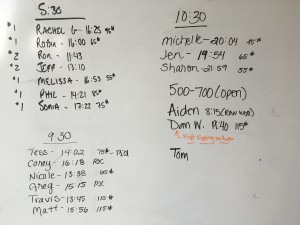 5:30
*1 RACHEL G - 16:25 95#
*1 ROTH - 16:00 65#
*2 RON - 11:43
*2 JEFF - 13:10
*1 MELISSA - 16:53 55#
*1 PHIL - 14:21 85#
*1 SONIA - 17:22 75#
9:30
Tess - 14:02 75#
Corey - 16:18 RX
Nicole - 13:38 65#
Greg - 15:15 RX
Travis - 13:45 115#
Matt - 15:56 115#
10:30
Michelle - 20:04
Jen - 19:54 65#
Sharon - 21:59 55#
500-700 (open)
Aiden 8:13
Dan W. 115#
Tom